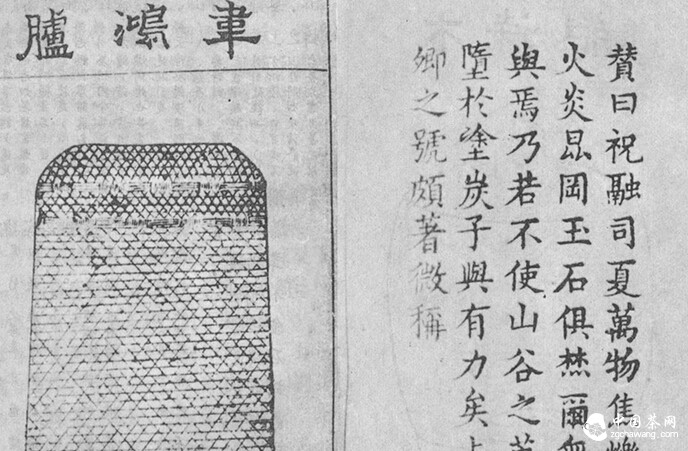 贊曰祝融司夏萬物焦爍
火炎昆岡玉石俱焚爾無
與焉乃若不使山谷之
墮於塗炭子與有力矣上
卿之號頗著微稱
韋鴻臚
中国茶网
zgchawang.com